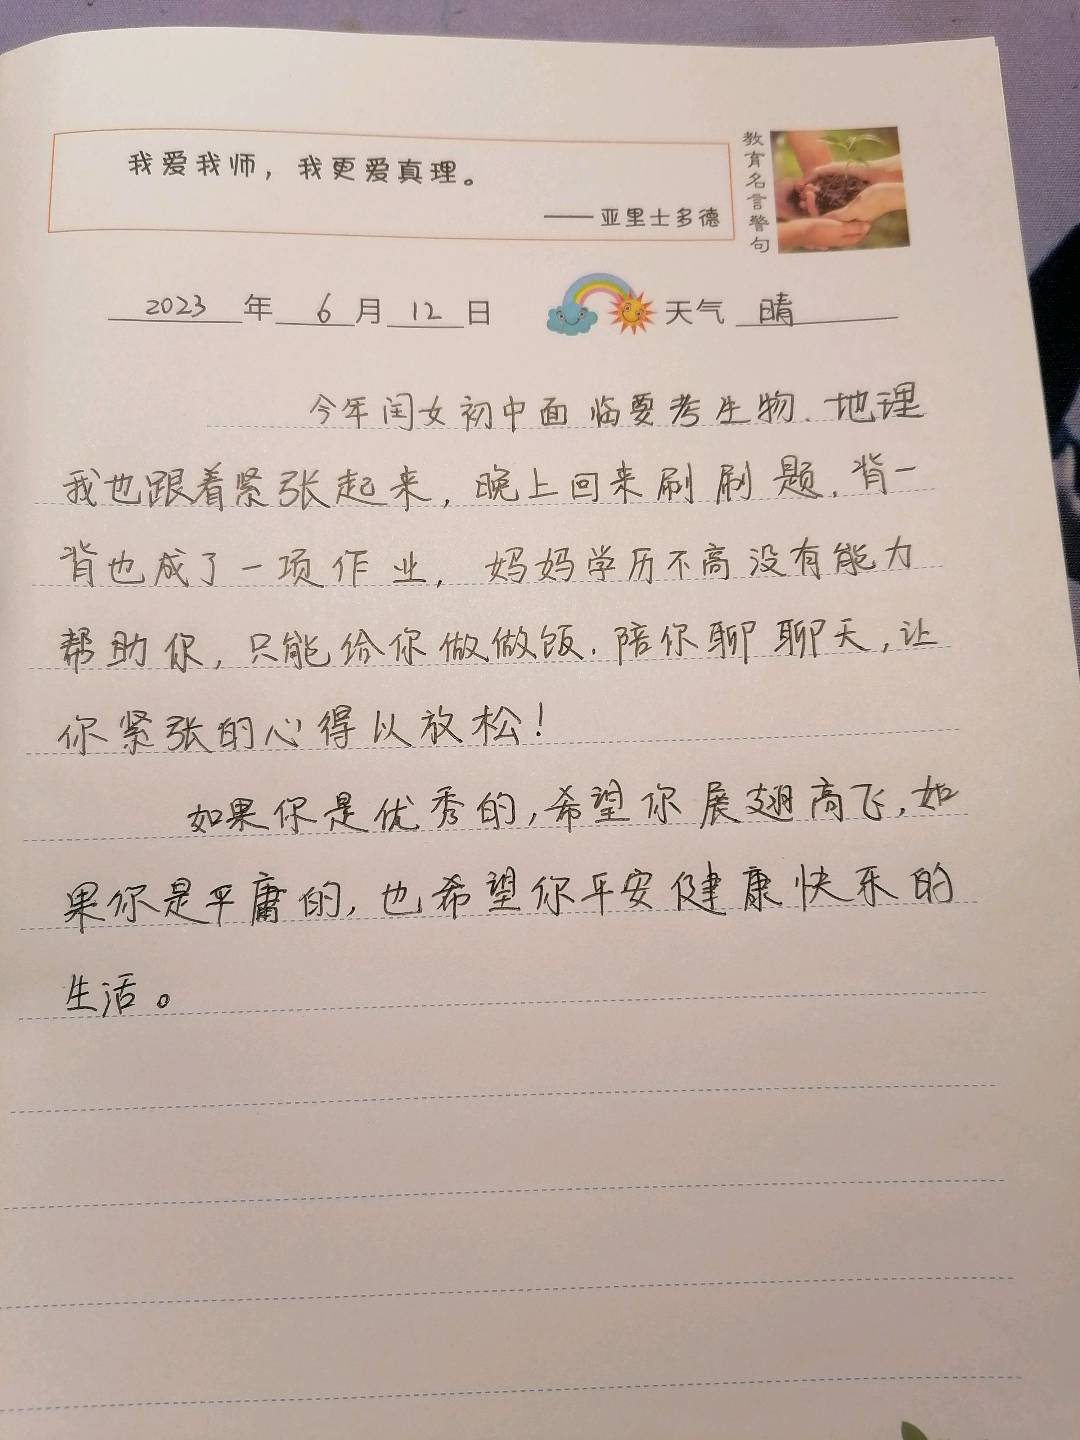 我爱我师，我更爱真理。
——亚里士多德
教育名言警句
2023年6月12日 天气 晴
今年闺女初中面临要考生物.地理
我也跟着紧张起来，晚上回来刷刷题，背一
背也成了一项作业，妈妈学历不高没有能力
帮助你，只能给你做做饭.陪你聊聊天，让
你紧张的心得以放松！
如果你是优秀的，希望你展翅高飞，如
果你是平庸的，也希望你平安健康快乐的
生活。